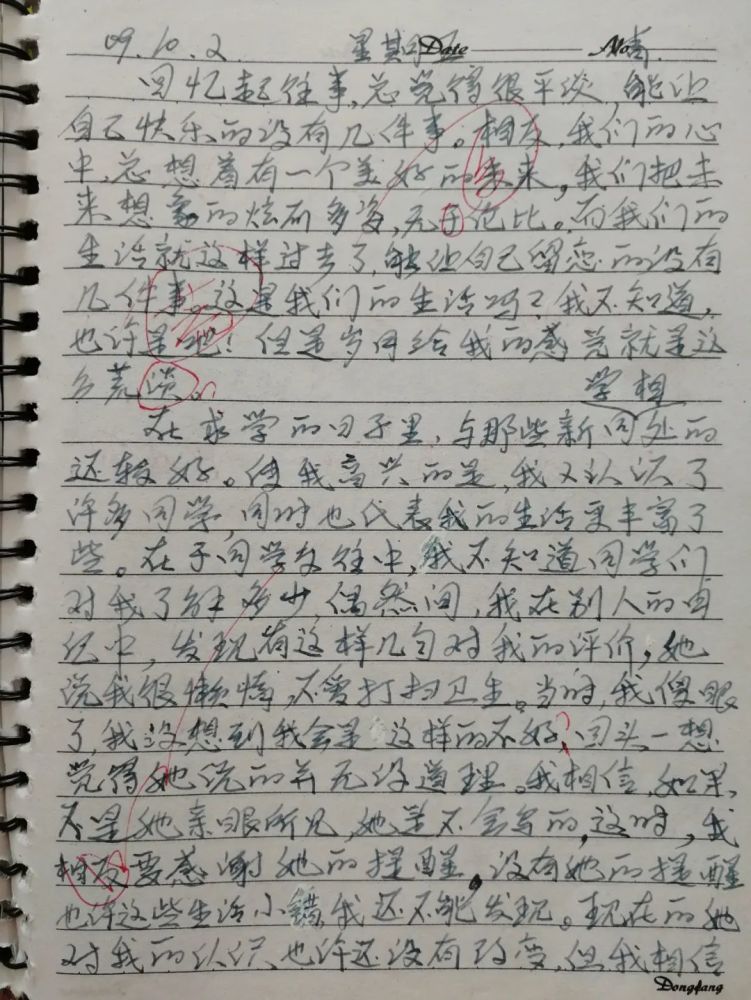 09.10.2 星期五 Date No 青
回忆起往事,总觉得很平淡,能让
自己快乐的没有几件事。相反,我们的心
中,总想着有一个美好的未来,我们把未
来想象的炫丽多姿,无于伦比。而我们的
生活就这样过去了,能让自己留恋的没有
几件事。这是我们的生活吗?我不知道,
也许是吧!但是岁月给我的感觉就是这
么荒淡。
学相
在求学的日子里,与那些新同处的
还较好。使我高兴的是,我又认识了
许多同学,同时也代表我的生活更丰富了
些。在于同学交往中,我不知道同学们
对我了解多少,偶然间,我在别人的日
记中,发现有这样几句对我的评价,她
说我很懒惰,不爱打扫卫生。当时,我傻眼
了,我没想到我会是这样的不好,回头一想
觉得她说的并无没道理。我相信,如果
不是她亲眼所见,她是不会写的,这时,我
相反要感谢她的提醒,没有她的提醒
也许这些生活小错我还不能发现。现在的她
对我的认识也许还没有改变,但我相信
Dongfang